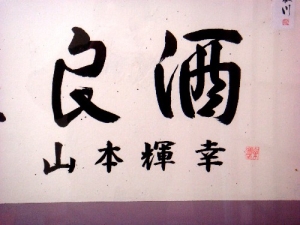 良酒
山本輝幸